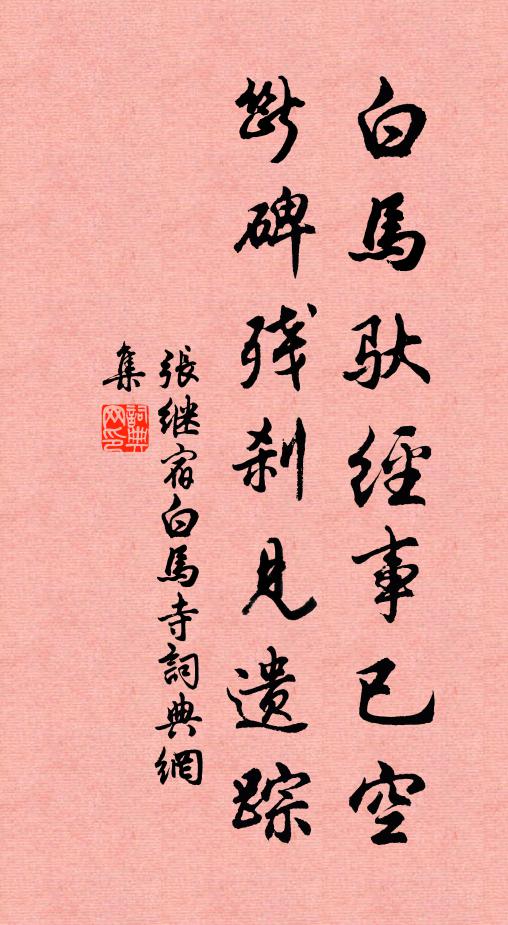 白馬馱經事已空
斷碑残刹見遺踪
張继宿白馬寺詞典網
集
詞典網印